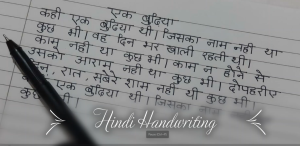 एक बुढ़िया
कही एक बुढ़िया थी। जिसका नाम नही था
कुछ भी। वह दिन भर खाली रहती थी।
काम नही था कुछ भी। काम न होने से
उसको आराम नही था कुछ भी। दोपहरीए
दिन, रात, सबेरे शाम नही थी कुछ भी।
एक बुढ़िया थी। जिसका नाम
कुछ भी।
Hindi Handwriting